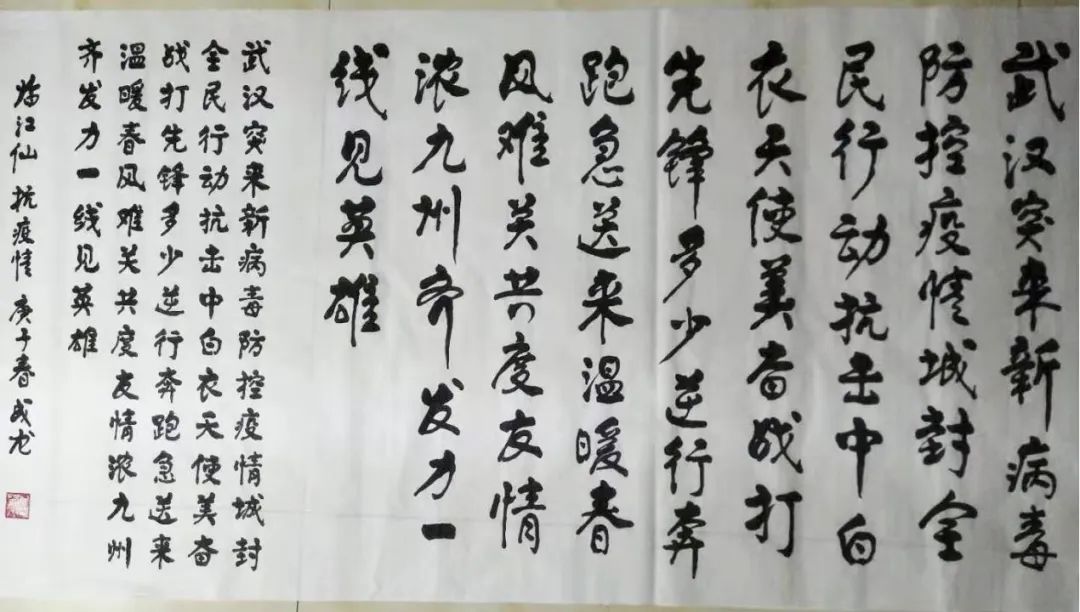 武汉突来新病毒
防控疫情城封全
民行动抗击中白
衣天使美奋战打
先锋多少逆行奔
跑急送来温暖春
风难关共度友情
浓九州齐发力一
线见英雄
武汉突来新病毒防控疫情城封
全民行动抗击中白衣天使美奋
战打先锋多少逆行奔跑急送来
温暖春风难关共度友情浓九州
齐发力一线见英雄
临江仙 抗疫情 庚子春